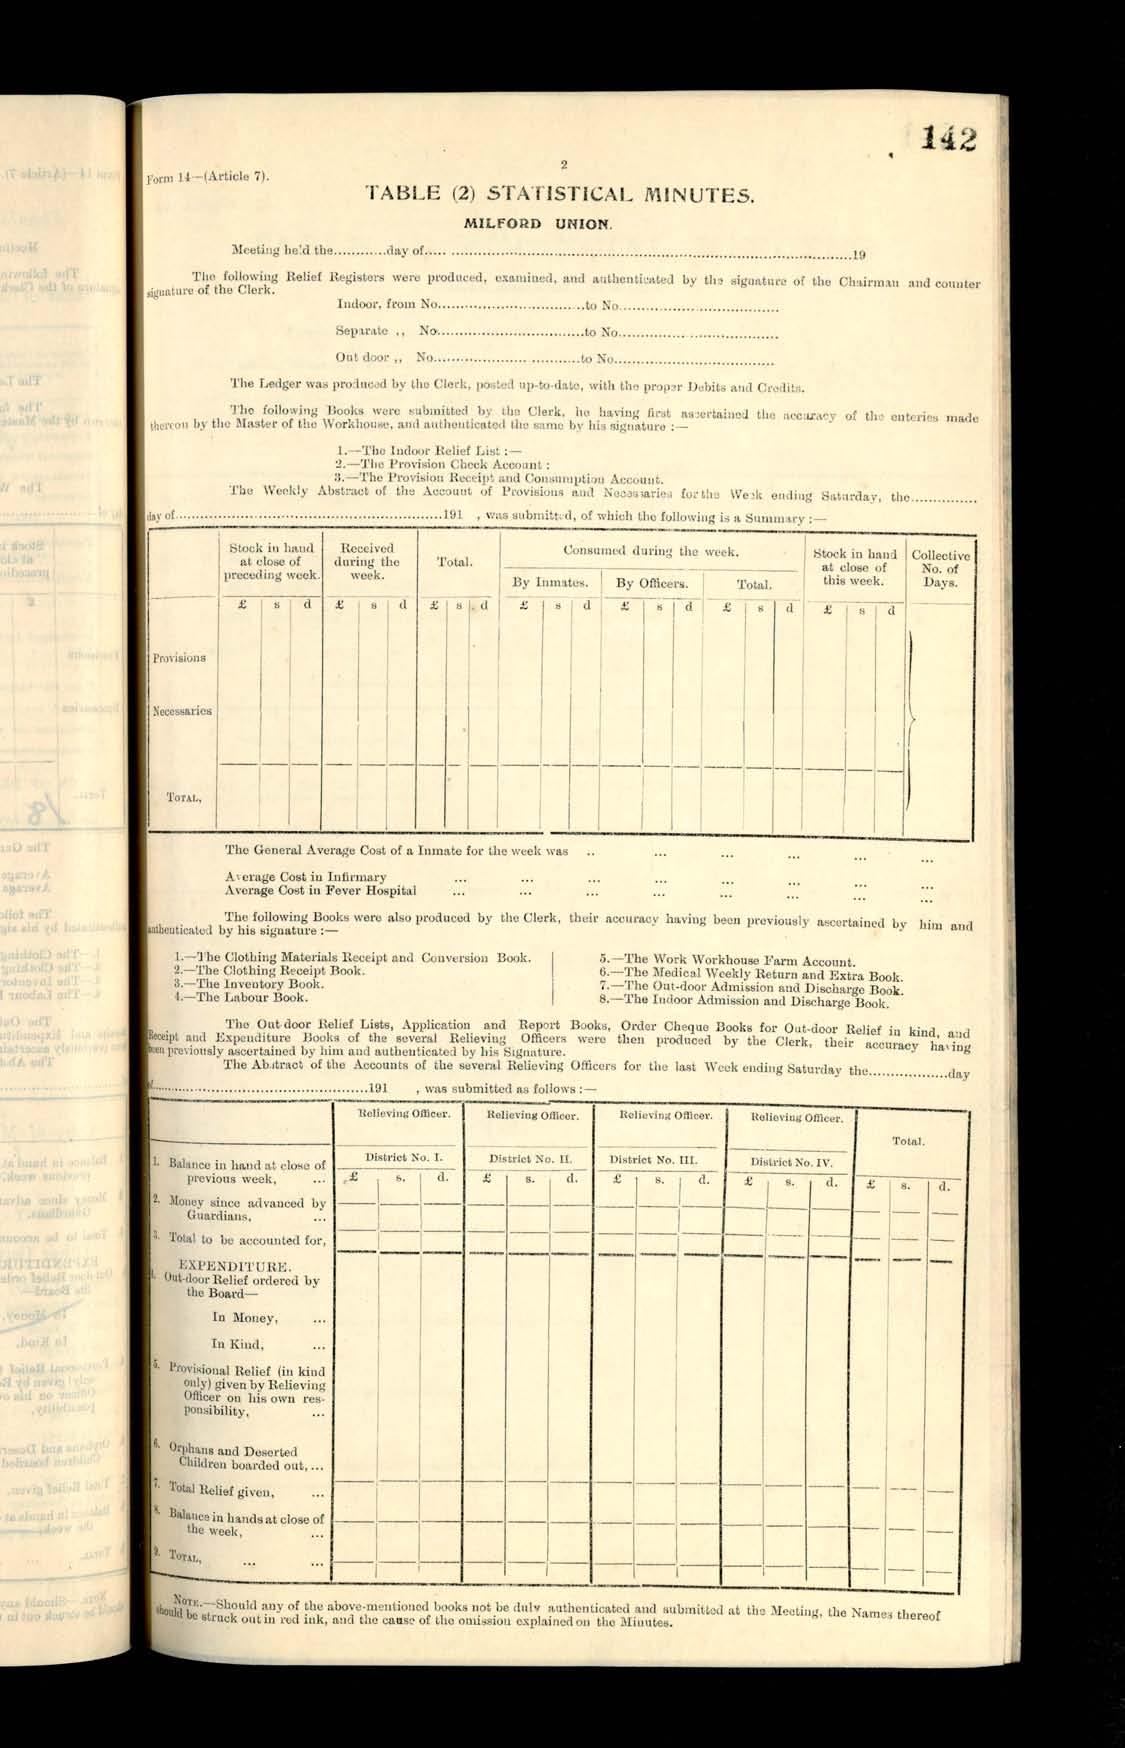 142
2
Form 14—(Article 7).
TABLE (2) STATISTICAL MINUTES.
MILFORD UNION.
Meeting held the............day of..... ..........................................................................................19
The following Relief Registers were produced, examined, and authenticated by the signature of the Chairman and counter
signature of the Clerk.
Indoor, from No.................................to No....................................
Separate ,, No.................................to No....................................
Out door ,, No.................................to No....................................
The Ledger was produced by the Clerk, posted up-to-date, with the proper Debits and Credits.
The following Books were submitted by the Clerk, he having first ascertained the accuracy of the enteries made
thereon by the Master of the Workhouse, and authenticated the same by his signature :—
1.—The Indoor Relief List :—
2.—The Provision Check Account :
3.—The Provision Receipt and Consumption Account.
The Weekly Abstract of the Account of Provisions and Necessaries for the Week ending Saturday, the...............
day of............................................................191 , was submitted, of which the following is a Summary :—
Stock in hand at close of preceding week. Received during the week. Total. Consumed during the week. Stock in hand at close of this week. Collective No. of Days.
By Inmates. By Officers. Total.
£ s d £ s d £ s d £ s d £ s d £ s d £ s d
Provisions
Necessaries
TOTAL,
The General Average Cost of a Inmate for the week was .. ... ... ... ... ...
Average Cost in Infirmary ... ... ... ... ... ... ... ...
Average Cost in Fever Hospital ... ... ... ... ... ... ... ...
The following Books were also produced by the Clerk, their accuracy having been previously ascertained by him and
authenticated by his signature :—
1.—The Clothing Materials Receipt and Conversion Book.
2.—The Clothing Receipt Book.
3.—The Inventory Book.
4.—The Labour Book.
5.—The Work Workhouse Farm Account.
6.—The Medical Weekly Return and Extra Book.
7.—The Out-door Admission and Discharge Book.
8.—The Indoor Admission and Discharge Book.
The Out-door Relief Lists, Application and Report Books, Order Cheque Books for Out-door Relief in kind, and
Receipt and Expenditure Books of the several Relieving Officers were then produced by the Clerk, their accuracy having
been previously ascertained by him and authenticated by his Signature.
The Abstract of the Accounts of the several Relieving Officers for the last Week ending Saturday the..................day
of................................................191 , was submitted as follows :—
Relieving Officer. Relieving Officer. Relieving Officer. Relieving Officer. Total.
District No. I. District No. II. District No. III. District No. IV.
£ s. d. £ s. d. £ s. d. £ s. d. £ s. d.
1. Balance in hand at close of
previous week, ...
2. Money since advanced by
Guardians, ...
3. Total to be accounted for,
EXPENDITURE.
4. Out-door Relief ordered by
the Board—
In Money, ...
In Kind, ...
5. Provisional Relief (in kind
only) given by Relieving
Officer on his own res-
ponsibility, ...
6. Orphans and Deserted
Children boarded out, ...
7. Total Relief given, ...
8. Balance in hands at close of
the week, ...
9. TOTAL, ... ...
NOTE.—Should any of the above-mentioned books not be duly authenticated and submitted at the Meeting, the Names thereof
should be struck out in red ink, and the cause of the omission explained on the Minutes.